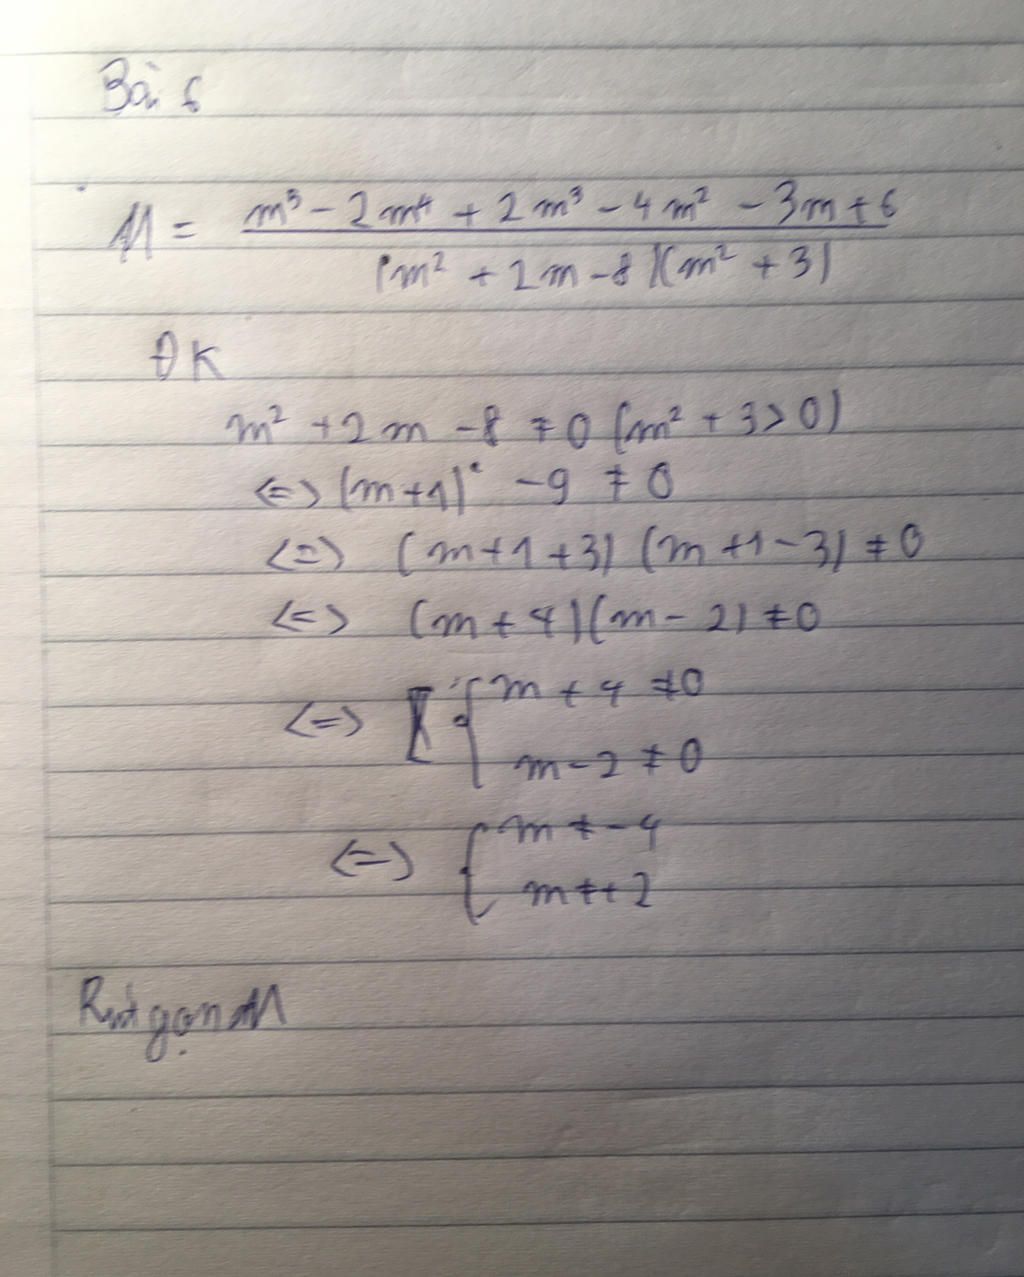 Bài 6
M = \frac{m^5 - 2m^4 + 2m^3 - 4m^2 - 3m + 6}{(m^2 + 2m - 8)(m^2 + 3)}
ĐK
m² + 2m - 8 ≠ 0 (m² + 3 > 0)
<=> (m+1)² - 9 ≠ 0
<=> (m+1+3) (m+1-3) ≠ 0
<=> (m+4)(m-2) ≠ 0
<=> { m + 4 ≠ 0
m - 2 ≠ 0
<=> { m ≠ -4
m ≠ +2
Rút gọn M